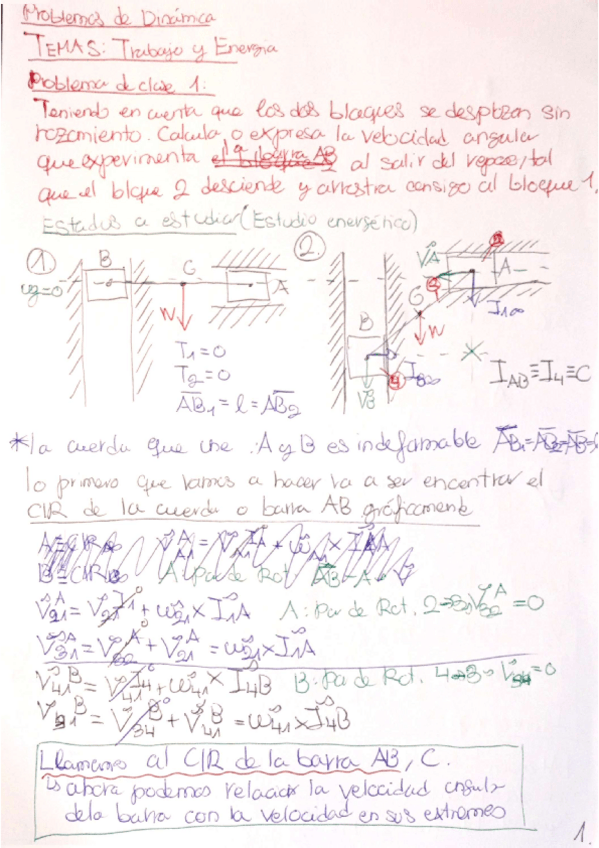 Problemas de Dinámica
TEMAS: Trabajo y Energia
Problema de clase 1:
Teniendo en cuenta que los dos bloques se desplazan sin
rozamiento. Calcula o expresa la velocidad angular
que experimenta el bloque AB al salir del reposo, tal
que el bloque 2 desciende y arrastra consigo al bloque 1.
Estados a estudiar (Estudio energético)
1. B G A
2. VA A
ω2=0
W
T1=0
T2=0
AB1 = l = AB2
G W I1∞
B VB I3∞
IAB≡I4≡C
*la cuerda que une A y B es indeformable AB1=AB2=AB=
lo primero que vamos a hacer va a ser encontrar el
CIR de la cuerda o barra AB gráficamente
V21^A = V21^I1 + ω21 x I1A A: Par de Rot. 2→3 V32^A=0
V31^A = V32^A + V21^A = ω21 x I1A
V41^B = V41^I4 + ω41 x I4B B: Par de Rot. 4→3 V34=0
V31^B = V34^B + V41^B = ω41 x I4B
Llamamos al CIR de la barra AB, C.
ahora podemos relacionar la velocidad angular
de la barra con la velocidad en sus extremos
1.